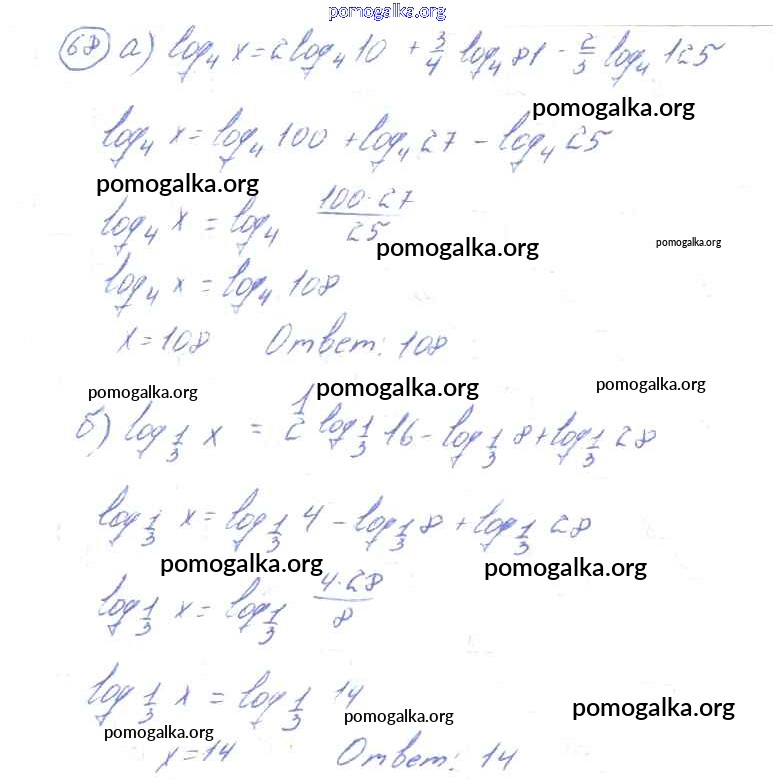 pomogalka.org
68 а) log₄ x = 2log₄ 10 + 3/4 log₄ 81 - 2/3 log₄ 125
pomogalka.org
log₄ x = log₄ 100 + log₄ 27 - log₄ 25
pomogalka.org
log₄ x = log₄ (100·27)/25
pomogalka.org
pomogalka.org
log₄ x = log₄ 108
x = 108 Ответ: 108
pomogalka.org
pomogalka.org
pomogalka.org
б) log_1/3 x = 1/2 log_1/3 16 - log_1/3 8 + log_1/3 28
log_1/3 x = log_1/3 4 - log_1/3 8 + log_1/3 28
pomogalka.org
pomogalka.org
log_1/3 x = log_1/3 (4·28)/8
log_1/3 x = log_1/3 14
pomogalka.org
pomogalka.org
pomogalka.org
x = 14 Ответ: 14